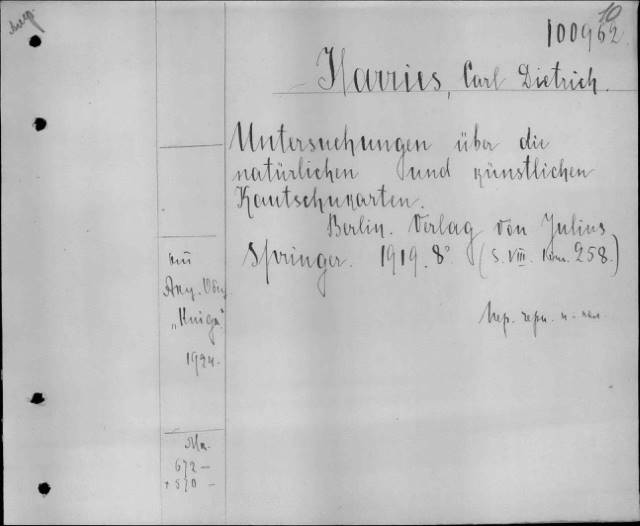 10
100962
Harries, Carl Dietrich.
Untersuchungen über die
natürlichen und künstlichen
Kautschukarten.
Berlin. Verlag von Julius
Springer. 1919. 8° (S. VIII. 258.)
"Kniga"
1924.
672 –